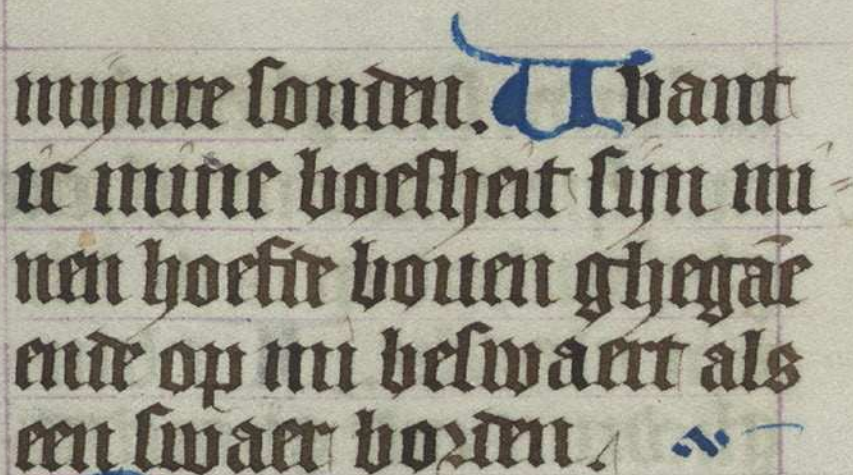 mijnre sonden. Want
ic mine boesheit sijn mi-
nen hoefde bouen ghegaē
ende op mi beswaert als
een swaer borden.